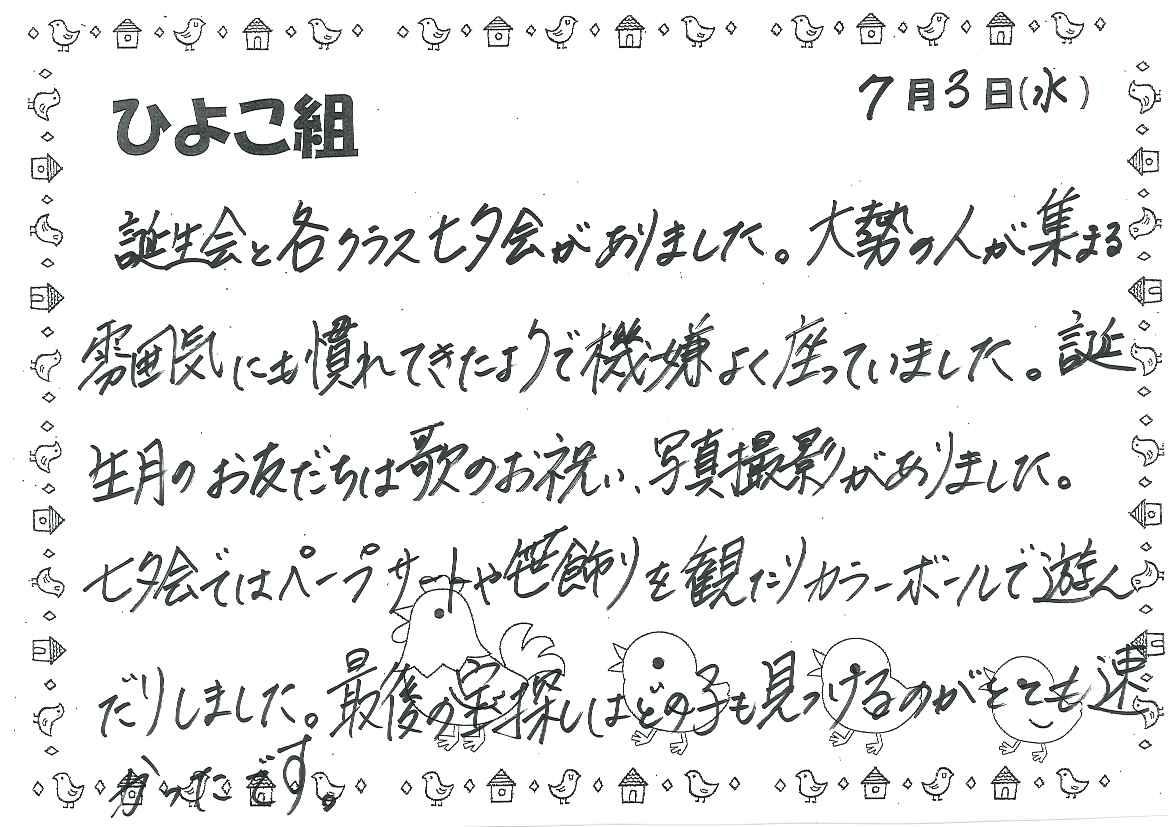 7月3日(水)
ひよこ組
誕生会と各クラス七夕会がありました。大勢の人が集まる
雰囲気にも慣れてきたようで機嫌よく座っていました。誕
生月のお友だちは歌のお祝い、写真撮影がありました。
七夕会ではペープサートや笹飾りを観たりカラーボールで遊ん
だりしました。最後の宝探しはどの子も見つけるのがとても速
かったです。